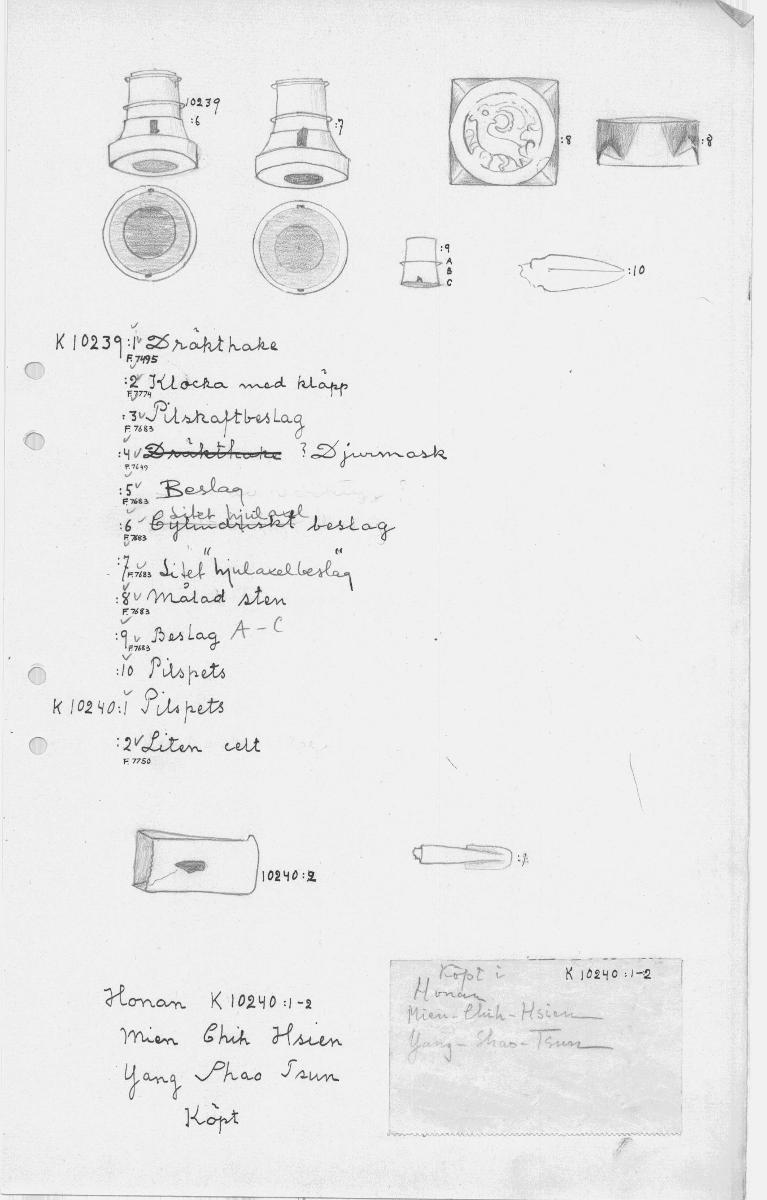 10239
:6
:7
:8
:8
:9
A
B
C
:10
K 10239:1 Dräkthake
F.7495
:2 Klocka med kläpp
F.7774
:3 Pilskaftbeslag
F.7683
:4 Dräkthake ? Djurmask
F.7649
:5 Beslag
F.7683
Litet hjulaxel
:6 Cylindriskt beslag
F.7683
:7 Litet "hjulaxelbeslag"
F.7683
:8 Målad sten
F.7683
:9 Beslag A-C
F.7683
:10 Pilspets
K 10240:1 Pilspets
:2 Liten celt
F.7750
10240:2
:1
Honan K 10240:1-2
Mien Chih Hsien
Yang Shao Tsun
Köpt
Köpt i K 10240:1-2
Honan
Mien-Chih-Hsien
Yang-Shao-Tsun